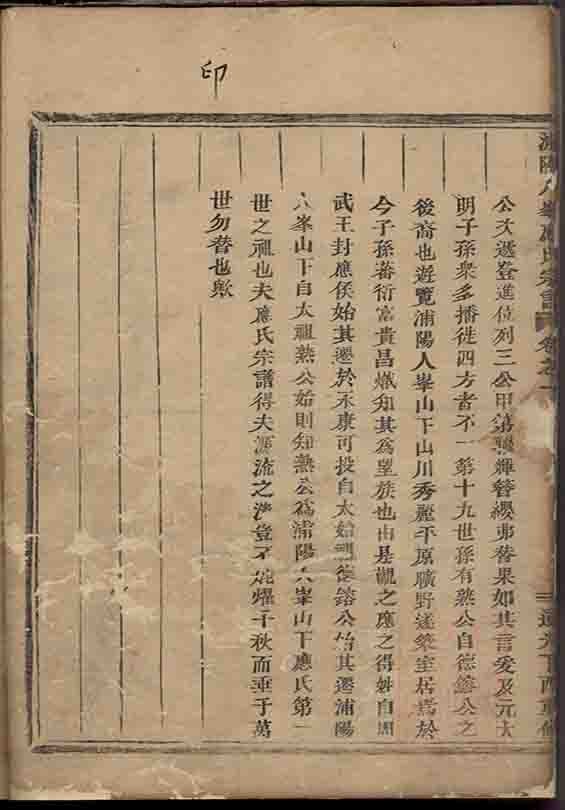 印
浦陽人峯應氏宗譜 卷之一
公次遞登進位列三公甲第聯輝簪纓弗替果如其言爰及元大
明子孫衆多播徙四方者不一第十九世孫有熟公自德鎔公之
後裔也遊覽浦陽人峯山下山川秀麗平原曠野遂築室居焉於
今子孫蕃衍富貴昌熾知其爲望族也由是觀之應之得姓自周
武王封應侯始其遷於永康可投自太始祖德鎔公始其遷浦陽
人峯山下自太祖熟公始則知熟公爲浦陽人峯山下應氏第一
世之祖也夫應氏宗譜得夫源流之渉豈不焜燿千秋而垂于萬
世勿替也歟